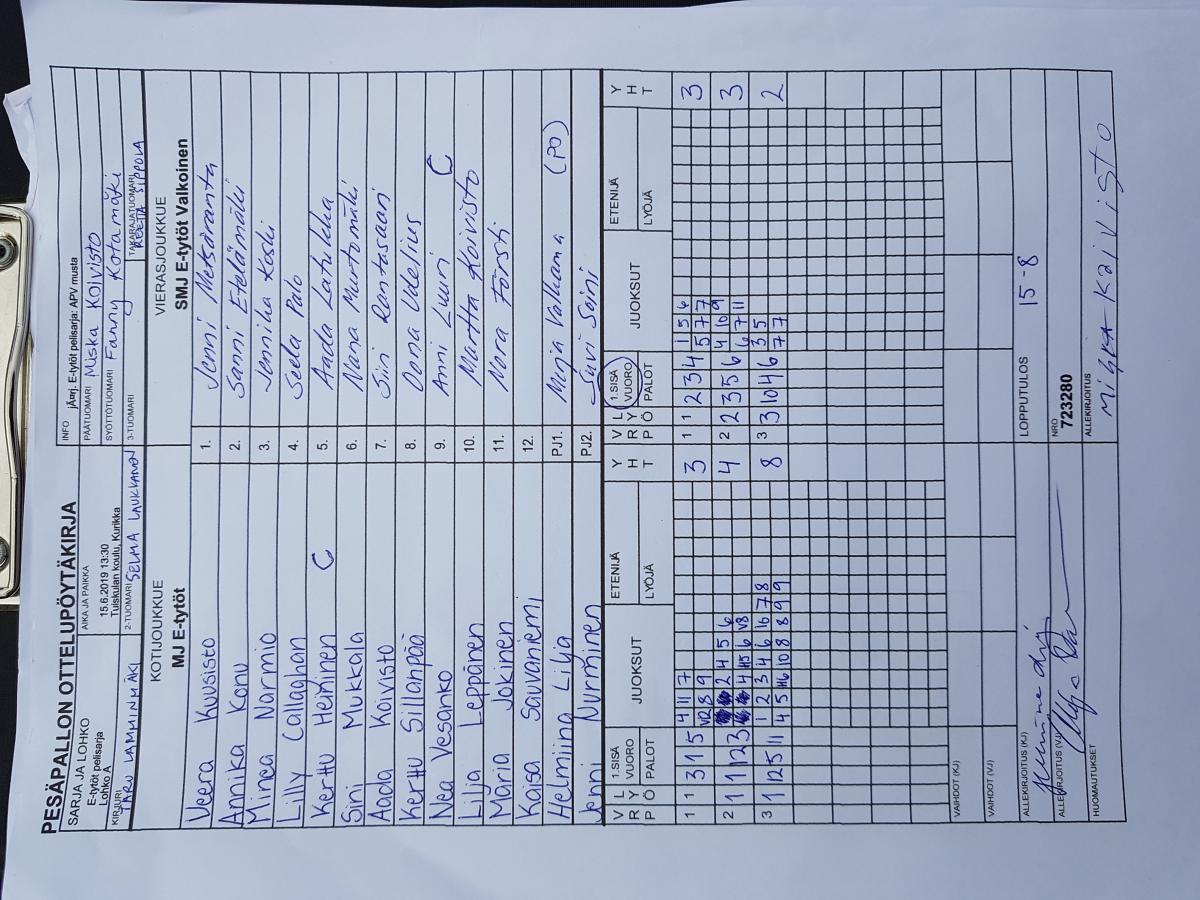 PESÄPALLON OTTELUPÖYTÄKIRJA
SARJA JA LOHKO
E-tytöt pelisarja
Lohko A
AIKA JA PAIKKA
15.6.2019 13:30
Tuiskulan koulu, Kurikka
INFO jÄ¤rj. E-tytöt pelisarja: APV musta
PÄÄTUOMARI Miska Koivisto
SYÖTTÖTUOMARI Fanny Kotamäki
KIRJURI SARU LAMMINMÄKI
2-TUOMARI SELMA LAUKKANEN
3-TUOMARI
TAKARAJATUOMARI REETA SIPPOLA
KOTIJOUKKUE
MJ E-tytöt
VIERASJOUKKUE
SMJ E-tytöt Valkoinen
Veera Kuusisto 1. Jenni Metsäranta
Annika Konu 2. Sanni Etelämäki
Minea Narmio 3. Jenniha Koski
Lilly Callaghan 4. Seela Palo
Kerttu Heminen C 5. Aada Latukka
Sini Mukkala 6. Nana Murtomäki
Aada Koivisto 7. Siiri Rantasaari
Kerttu Sillanpää 8. Oona Udelius
Nea Vesanko 9. Anni Luuri C
Lilja Leppänen 10. Martta Koivisto
Maria Jokinen 11. Nora Försti
Kaisa Sauvaniemi 12.
Helmiina Lilja PJ1. Minja Valkama (PO)
Jenni Nurminen PJ2. Suvi Soini
V R P L Y Ö 1.SISÄ VUORO PALOT JUOKSUT ETENIJÄ LYÖJÄ Y H T
V R P L Y Ö 1.SISÄ VUORO PALOT JUOKSUT ETENIJÄ LYÖJÄ Y H T
1 1 3 1 5 4 11 7 3
V12 8 9
1 1 2 3 4 1 5 6 3
5 7 7
2 1 1 12 3 2 4 5 6 4
4 H5 6 V8
2 2 3 5 6 4 10 9 3
6 7 11
3 1 12 5 11 1 2 3 4 6 16 7 8 8
4 5 H6 10 8 8 9 9
3 3 10 4 6 3 5 2
7 7
VAIHDOT (KJ)
VAIHDOT (VJ)
ALLEKIRJOITUS (KJ)
LOPPUTULOS 15-8
ALLEKIRJOITUS (VJ)
NRO
723280
HUOMAUTUKSET
ALLEKIRJOITUS
Miska Koivisto